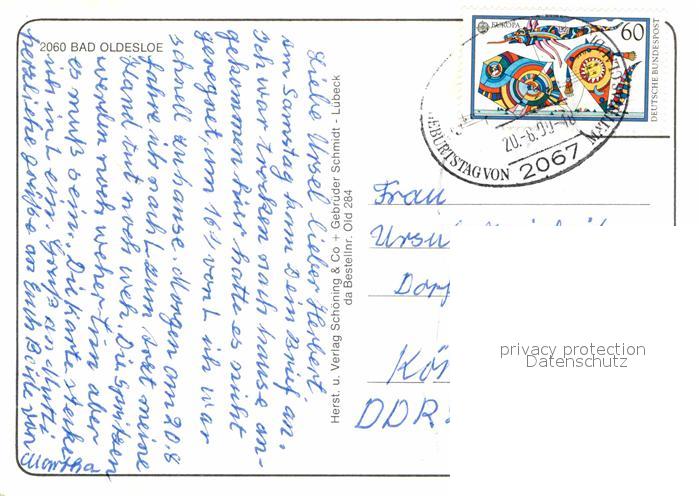 2060 BAD OLDESLOE
EUROPA
60
DEUTSCHE BUNDESPOST
20.-8.90-18
GEBURTSTAG VON
2067
Liebe Ursel lieber Herbert
am Samstag kam Dein Brief an.
Ich war trocken nach hause an-
gekommen hier hatte es nicht
geregnet, um 16 ½ von L ich war
schnell zu hause. Morgen am 20.8
fahre ich nach L zum Arzt meine
Hand tut noch weh. Die Spritzen
werden noch weher tun aber
es muß sein. Die Karte stecke
ich in L ein. Gruß an Mutti
herzliche Grüße an Euch Beide von
Martha
Herst. u. Verlag Schöning & Co + Gebrüder Schmidt - Lübeck
da Bestellnr. Old 284
Frau
Ursu
Dorf
Kön
DDR
privacy protection
Datenschutz